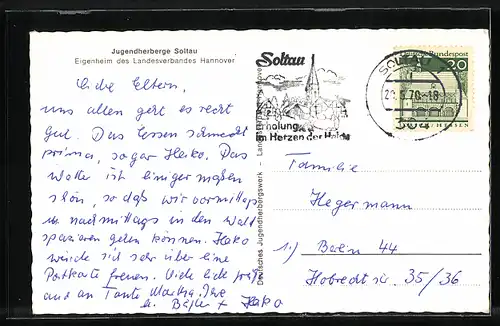 Jugendherberge Soltau
Eigenheim des Landesverbandes Hannover
Liebe Eltern,
uns allen geht es recht
gut. Das Essen schmeckt
prima, sogar Heiko. Das
Wetter ist einigermaßen
schön, so daß wir vormittags
u. nachmittags in den Wald
spazieren gehen können. Heiko
würde sich sehr über eine
Postkarte freuen. Viele liebe Grüße
auch an Tante Martha, Ihre
u. Heiko
Deutsches Jugendherbergswerk - Landesverband
Soltau
Erholung
im Herzen der Heide
SOLTAU
70.-18
304
Deutsche Bundespost
20
HESSEN
Familie
Hegermann
1.) Berlin 44
Hobrechtstr. 35/36